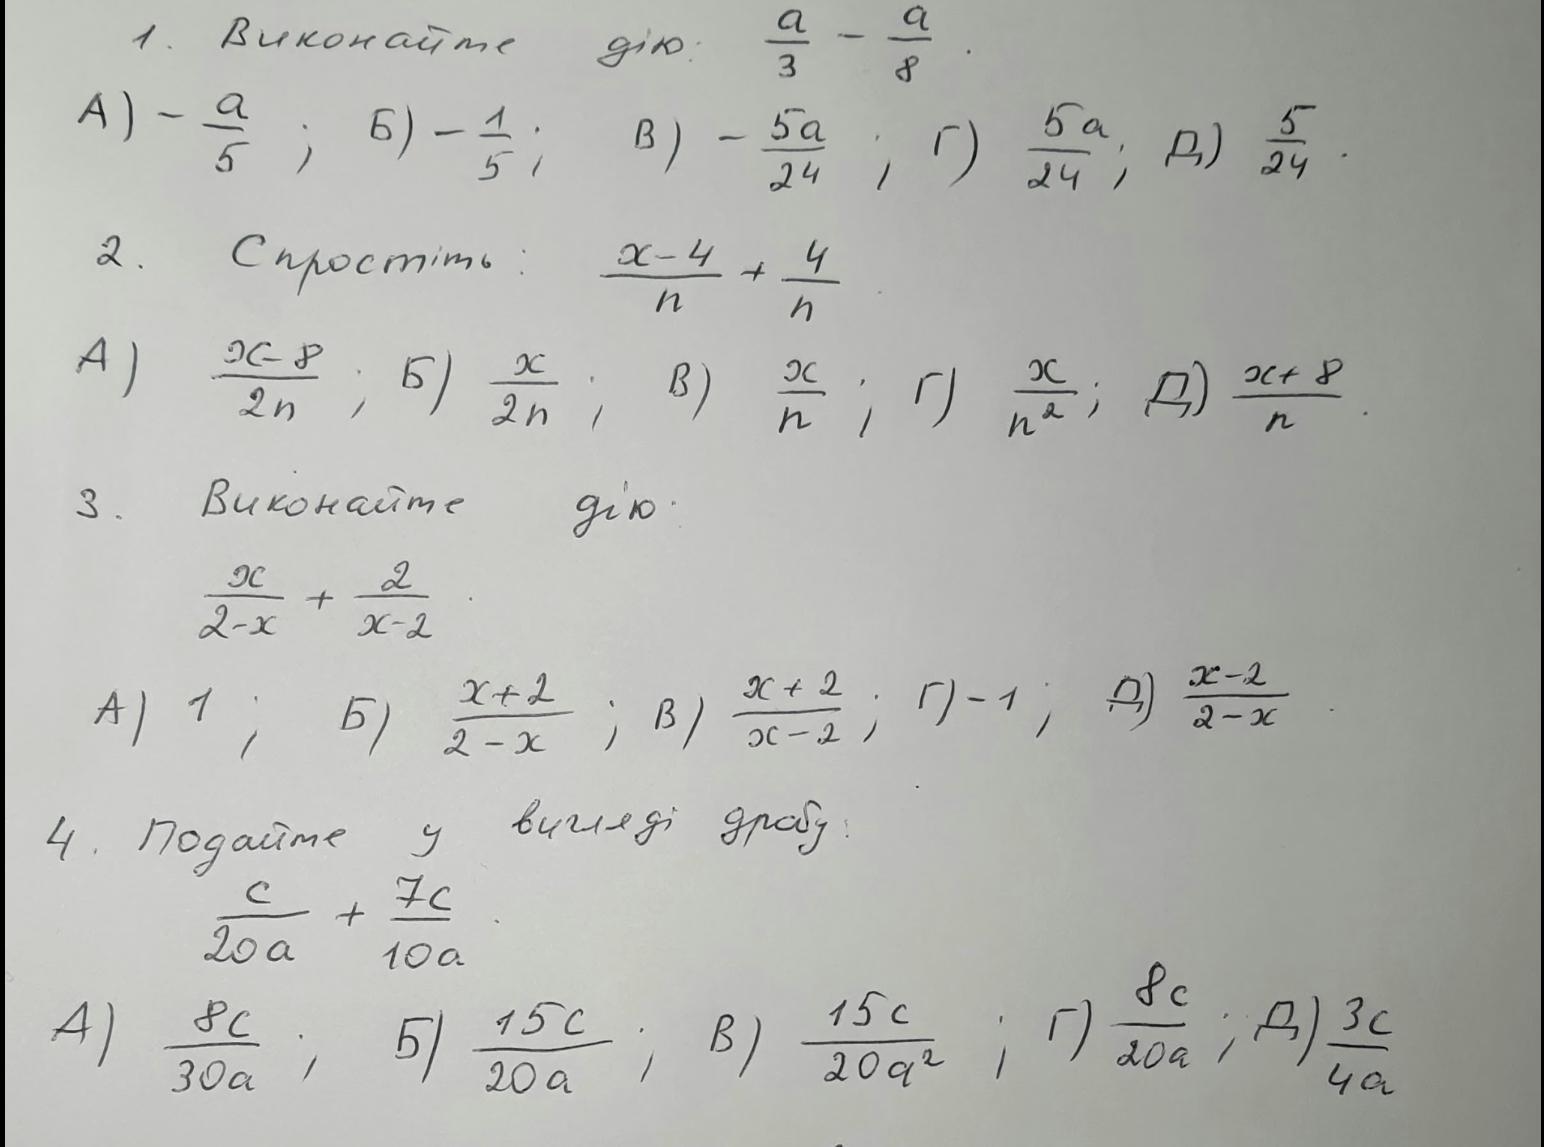 1. Виконайте дію: a/3 - a/8.
А) - a/5; Б) - 1/5; В) - 5a/24; Г) 5a/24; Д) 5/24.
2. Спростіть: (x-4)/n + 4/n.
А) (x-8)/2n; Б) x/2n; В) x/n; Г) x/n²; Д) (x+8)/n.
3. Виконайте дію:
x/(2-x) + 2/(x-2).
А) 1; Б) (x+2)/(2-x); В) (x+2)/(x-2); Г) -1; Д) (x-2)/(2-x).
4. Подайте у вигляді дробу:
c/20a + 7c/10a.
А) 8c/30a; Б) 15c/20a; В) 15c/20a²; Г) 8c/20a; Д) 3c/4a